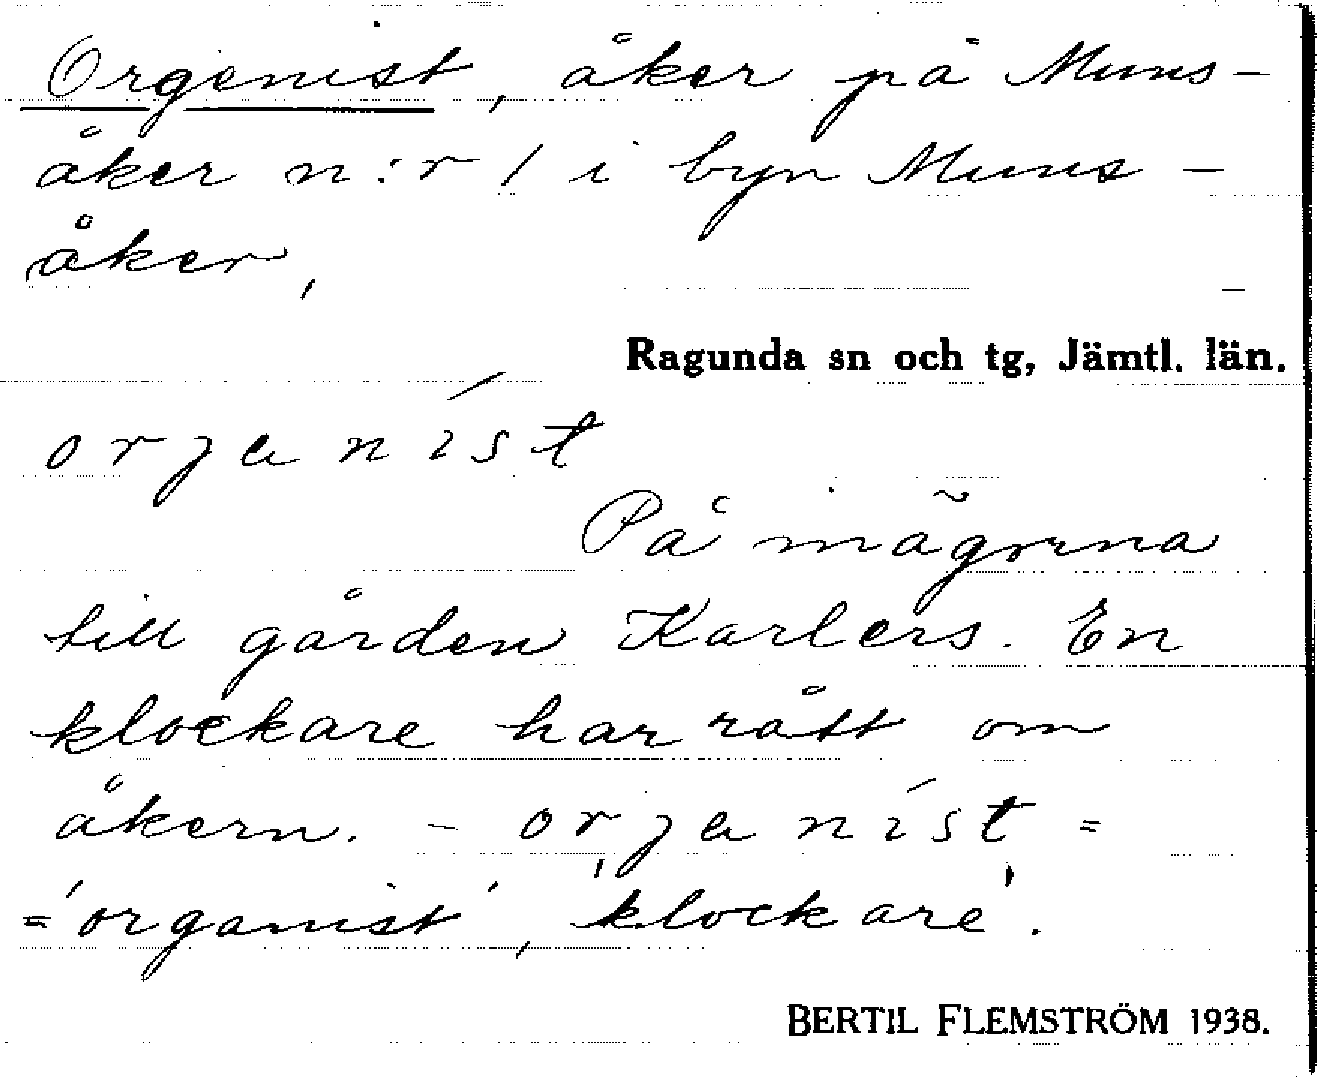 Orgenist, åker på Muns-
åker n:r 1 i byn Muns-
åker,
Ragunda sn och tg, Jämtl. län.
orjaníst
På inägorna
till gården Karlers. En
klockare har rått om
åkern. - orjaníst =
= 'organist', 'klockare'.
BERTIL FLEMSTRÖM 1938.